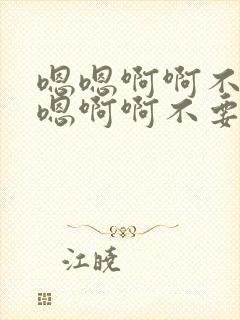 嗯嗯啊啊不
嗯啊啊不要
江晓